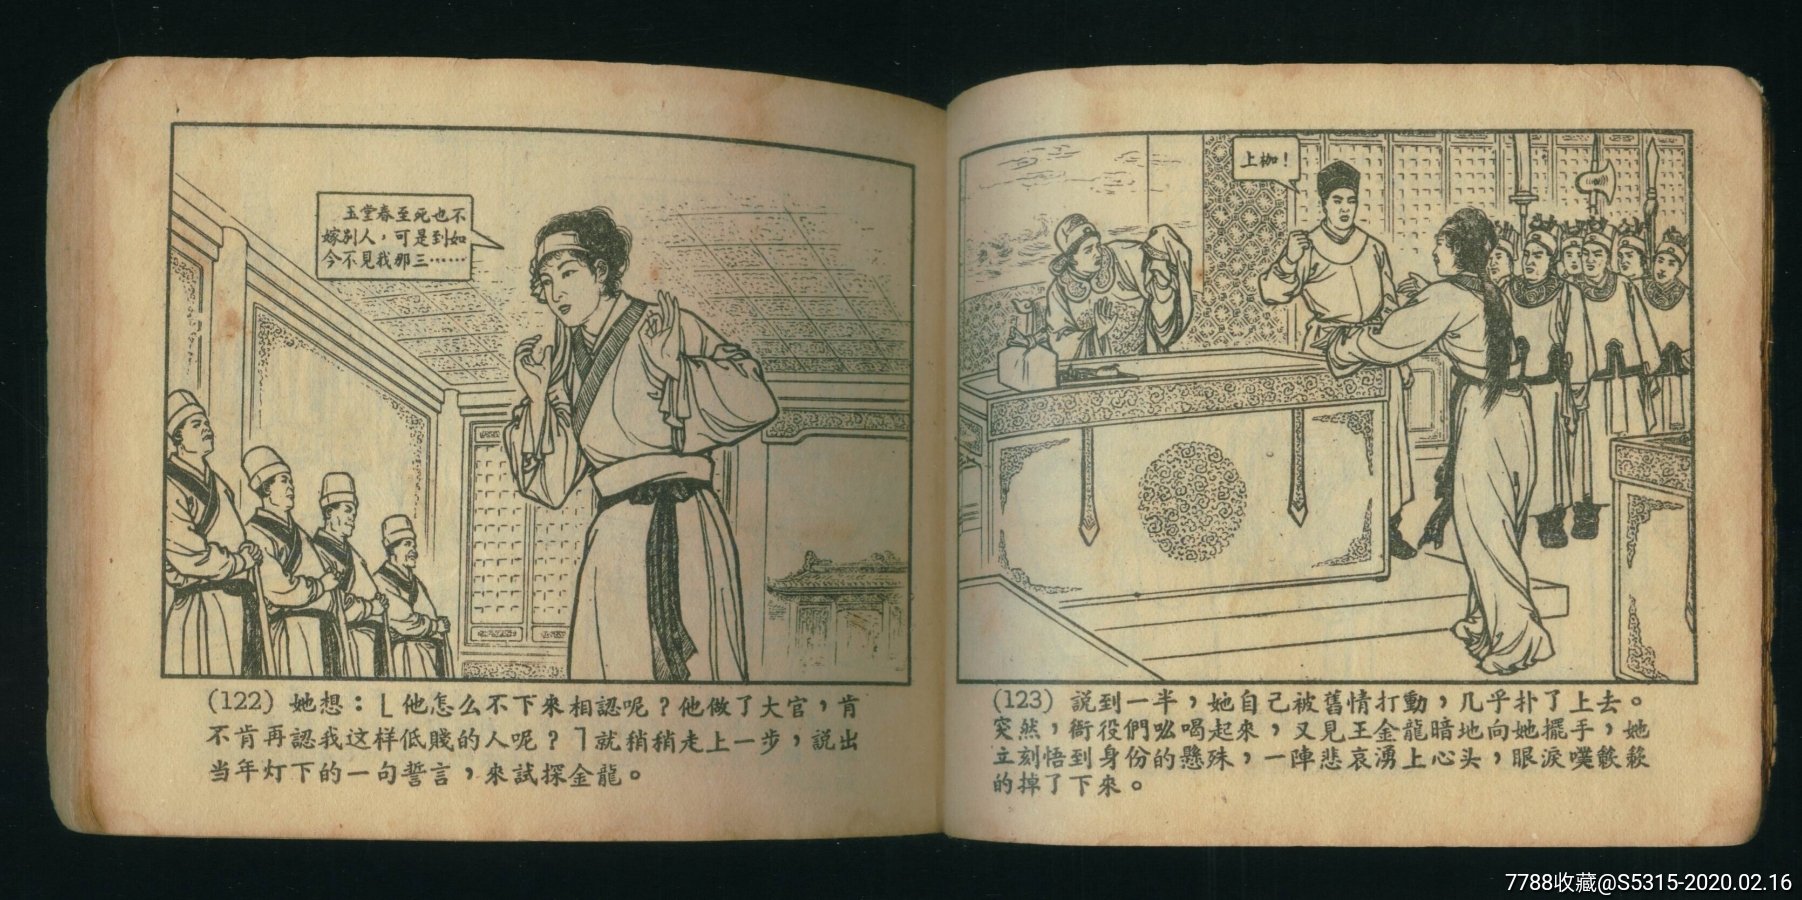 玉堂春至死也不
嫁别人，可是到如
今不見我那三……
(122) 她想：⎣他怎么不下來相認呢？他做了大官，肯
不肯再認我这样低賤的人呢？⎤就稍稍走上一步，說出
当年灯下的一句誓言，來試探金龍。
上枷！
(123) 説到一半，她自己被舊情打動，几乎扑了上去。
突然，衙役們吆喝起來，又見王金龍暗地向她擺手，她
立刻悟到身份的懸殊，一陣悲哀湧上心头，眼淚噗簌簌
的掉了下來。
7788收藏@S5315-2020.02.16